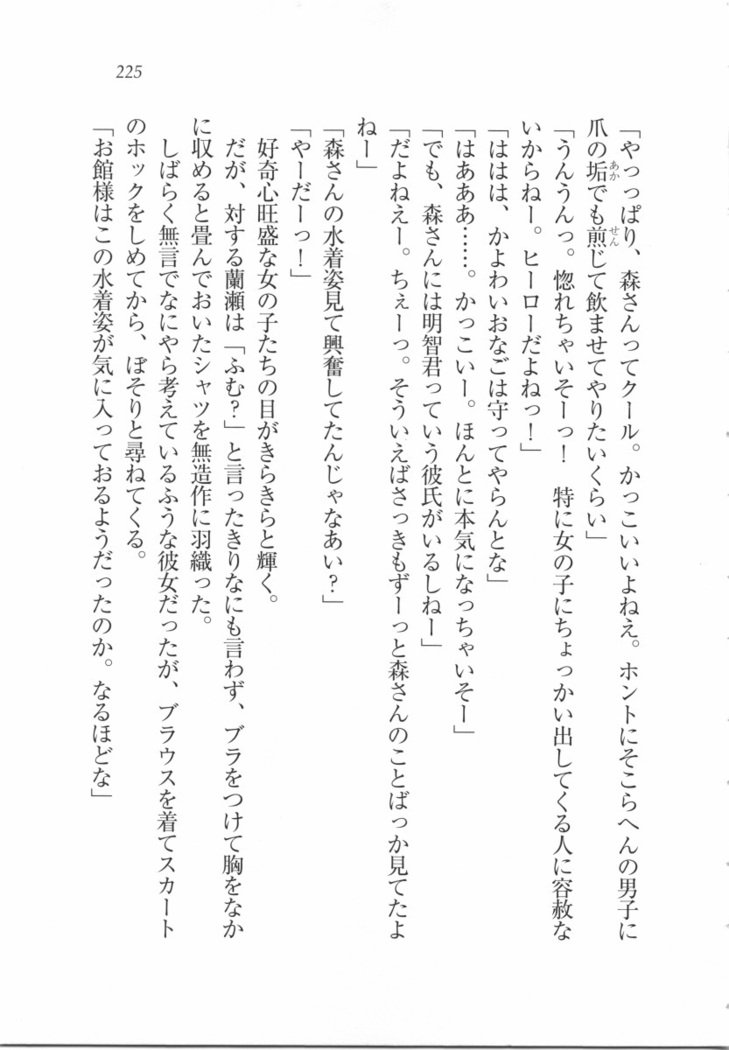 225
「やっっぱり、森さんってクール。かっこいいよねえ。ホントにそこらへんの男子に
爪の垢でも煎じて飲ませてやりたいくらい」
「うんうんっ。惚れちゃいそーっ！　特に女の子にちょっかい出してくる人に容赦な
いからねー。ヒーローだよねっ！」
「ははは、かよわいおなごは守ってやらんとな」
「はあああ……。かっこいー。ほんとに本気になっちゃいそー」
「でも、森さんには明智君っていう彼氏がいるしねー」
「だよねえー。ちぇーっ。そういえばさっきもずーっと森さんのことばっか見てたよ
ねー」
「森さんの水着姿見て興奮してたんじゃなあい？」
「やーだーっ！」
　好奇心旺盛な女の子たちの目がきらきらと輝く。
　だが、対する蘭瀬は「ふむ？」と言ったきりなにも言わず、ブラをつけて胸をなか
に収めると畳んでおいたシャツを無造作に羽織った。
　しばらく無言でなにやら考えているふうな彼女だったが、ブラウスを着てスカート
のホックをしめてから、ぽそりと尋ねてくる。
「お館様はこの水着姿が気に入っておるようだったのか。なるほどな」